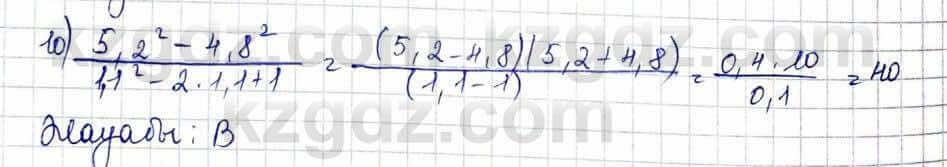 10) \frac{5,2² - 4,8²}{1,1² - 2 · 1,1 + 1} = \frac{(5,2 - 4,8)(5,2 + 4,8)}{(1,1 - 1)} = \frac{0,4 · 10}{0,1} = 40
Жауабы: В
kzgdz.com